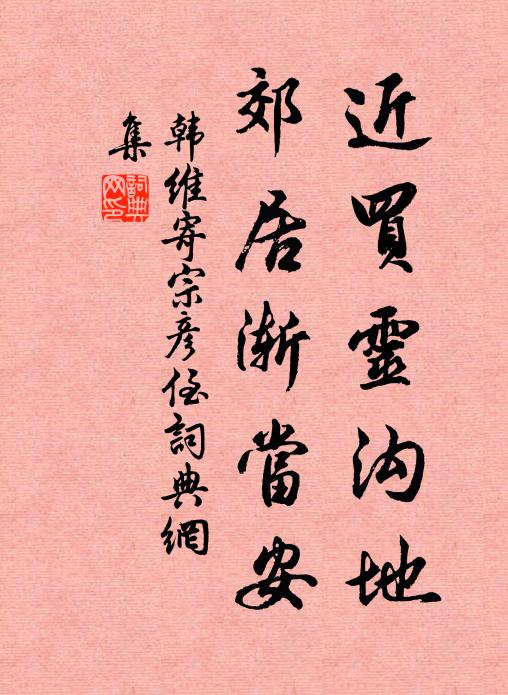 近買靈沟地
郊居渐當安
韩維寄宗彦侄詞典網
集
詞典
网印